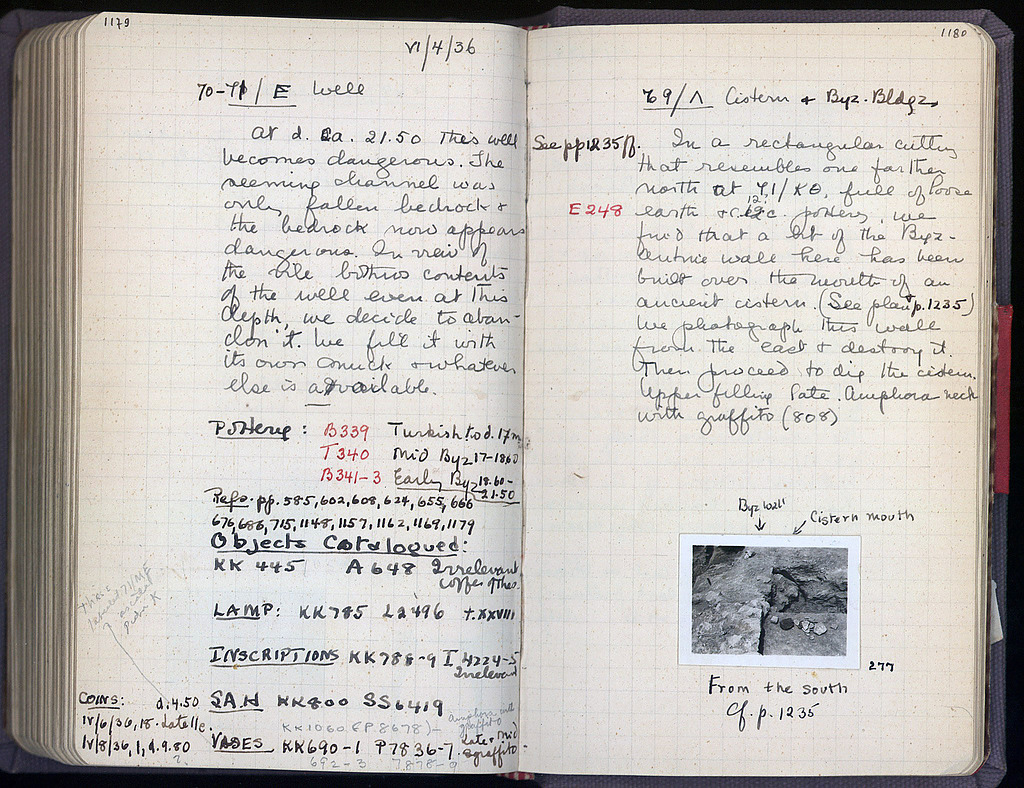 1179
VI/4/36
70-71/E Well
At d. ca. 21.50 this well
becomes dangerous. The
seeming channel was
only fallen bedrock &
the bedrock now appears
dangerous. In view of
the contents
of the well even at this
depth, we decide to aban-
don it. We fill it with
its own muck & whatever
else is available.
Pottery: B339 Turkish to d. 17m
T340 Mid Byz 17-18.60
B341-3 Early Byz 18.60-
21.50
Refs. pp. 585, 602, 608, 624, 655, 666
676, 686, 715, 1148, 1157, 1162, 1169, 1179
Objects Catalogued:
KK 445 A 648 Irrelevant
LAMP: KK785 L2496 t. XXVIII
INSCRIPTIONS KK788-9 I 4224-5
Irrelevant
COINS: d. 4.50
IV/6/36, 18.
IV/8/36, 1, d. 9.80
?
SAH KK800 SS6419
KK1060 (P8678)
Amphora with
graffito
VASES KK690-1 P7836-7
692-3 7878-9
1180
69/Λ Cistern & Byz. Bldgs.
See pp 1235ff.
In a rectangular cutting
that resembles one farther
north at 71/ΚΘ, full of loose
E248
earth & c. 12c. pottery, we
12?
find that a bit of the Byz-
antine wall here has been
built over the mouth of an
ancient cistern. (See plan p. 1235)
We photograph this wall
from the east & destroy it.
Then proceed to dig the cistern.
Upper filling late. Amphora neck
with graffito (808)
Byz wall
Cistern mouth
277
From the south
Cf. p. 1235